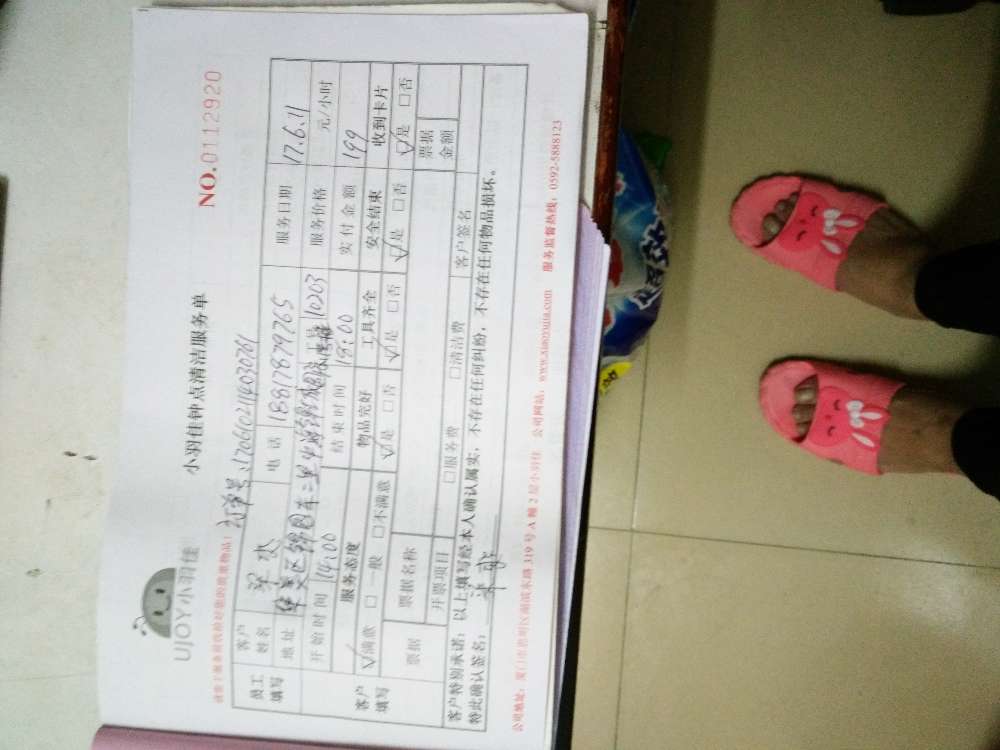 UJOY小羽佳
小羽佳钟点清洁服务单
NO.0112920
订单号:
员工填写
客户姓名
电话 18817879765
服务日期 17.6.11
地址
工号 10203
服务价格 元/小时
开始时间 14:00
结束时间 18:00
实付金额 199
客户填写
服务态度 物品完好 工具齐全 安全结束 收到卡片
☑满意 □一般 □不满意 ☑是 □否 ☑是 □否 ☑是 □否 ☑是 □否
票据 票据名称 票据金额
开票项目 □服务费 □清洁费 客户签名
客户特别承诺：以上填写经本人确认属实，不存在任何纠纷，不存在任何物品损坏。
特此确认签名：
公司地址：厦门市思明区湖滨东路319号A幢2层小羽佳 公司网站：www.xiaoyujia.com 服务监督热线：0592-5888123